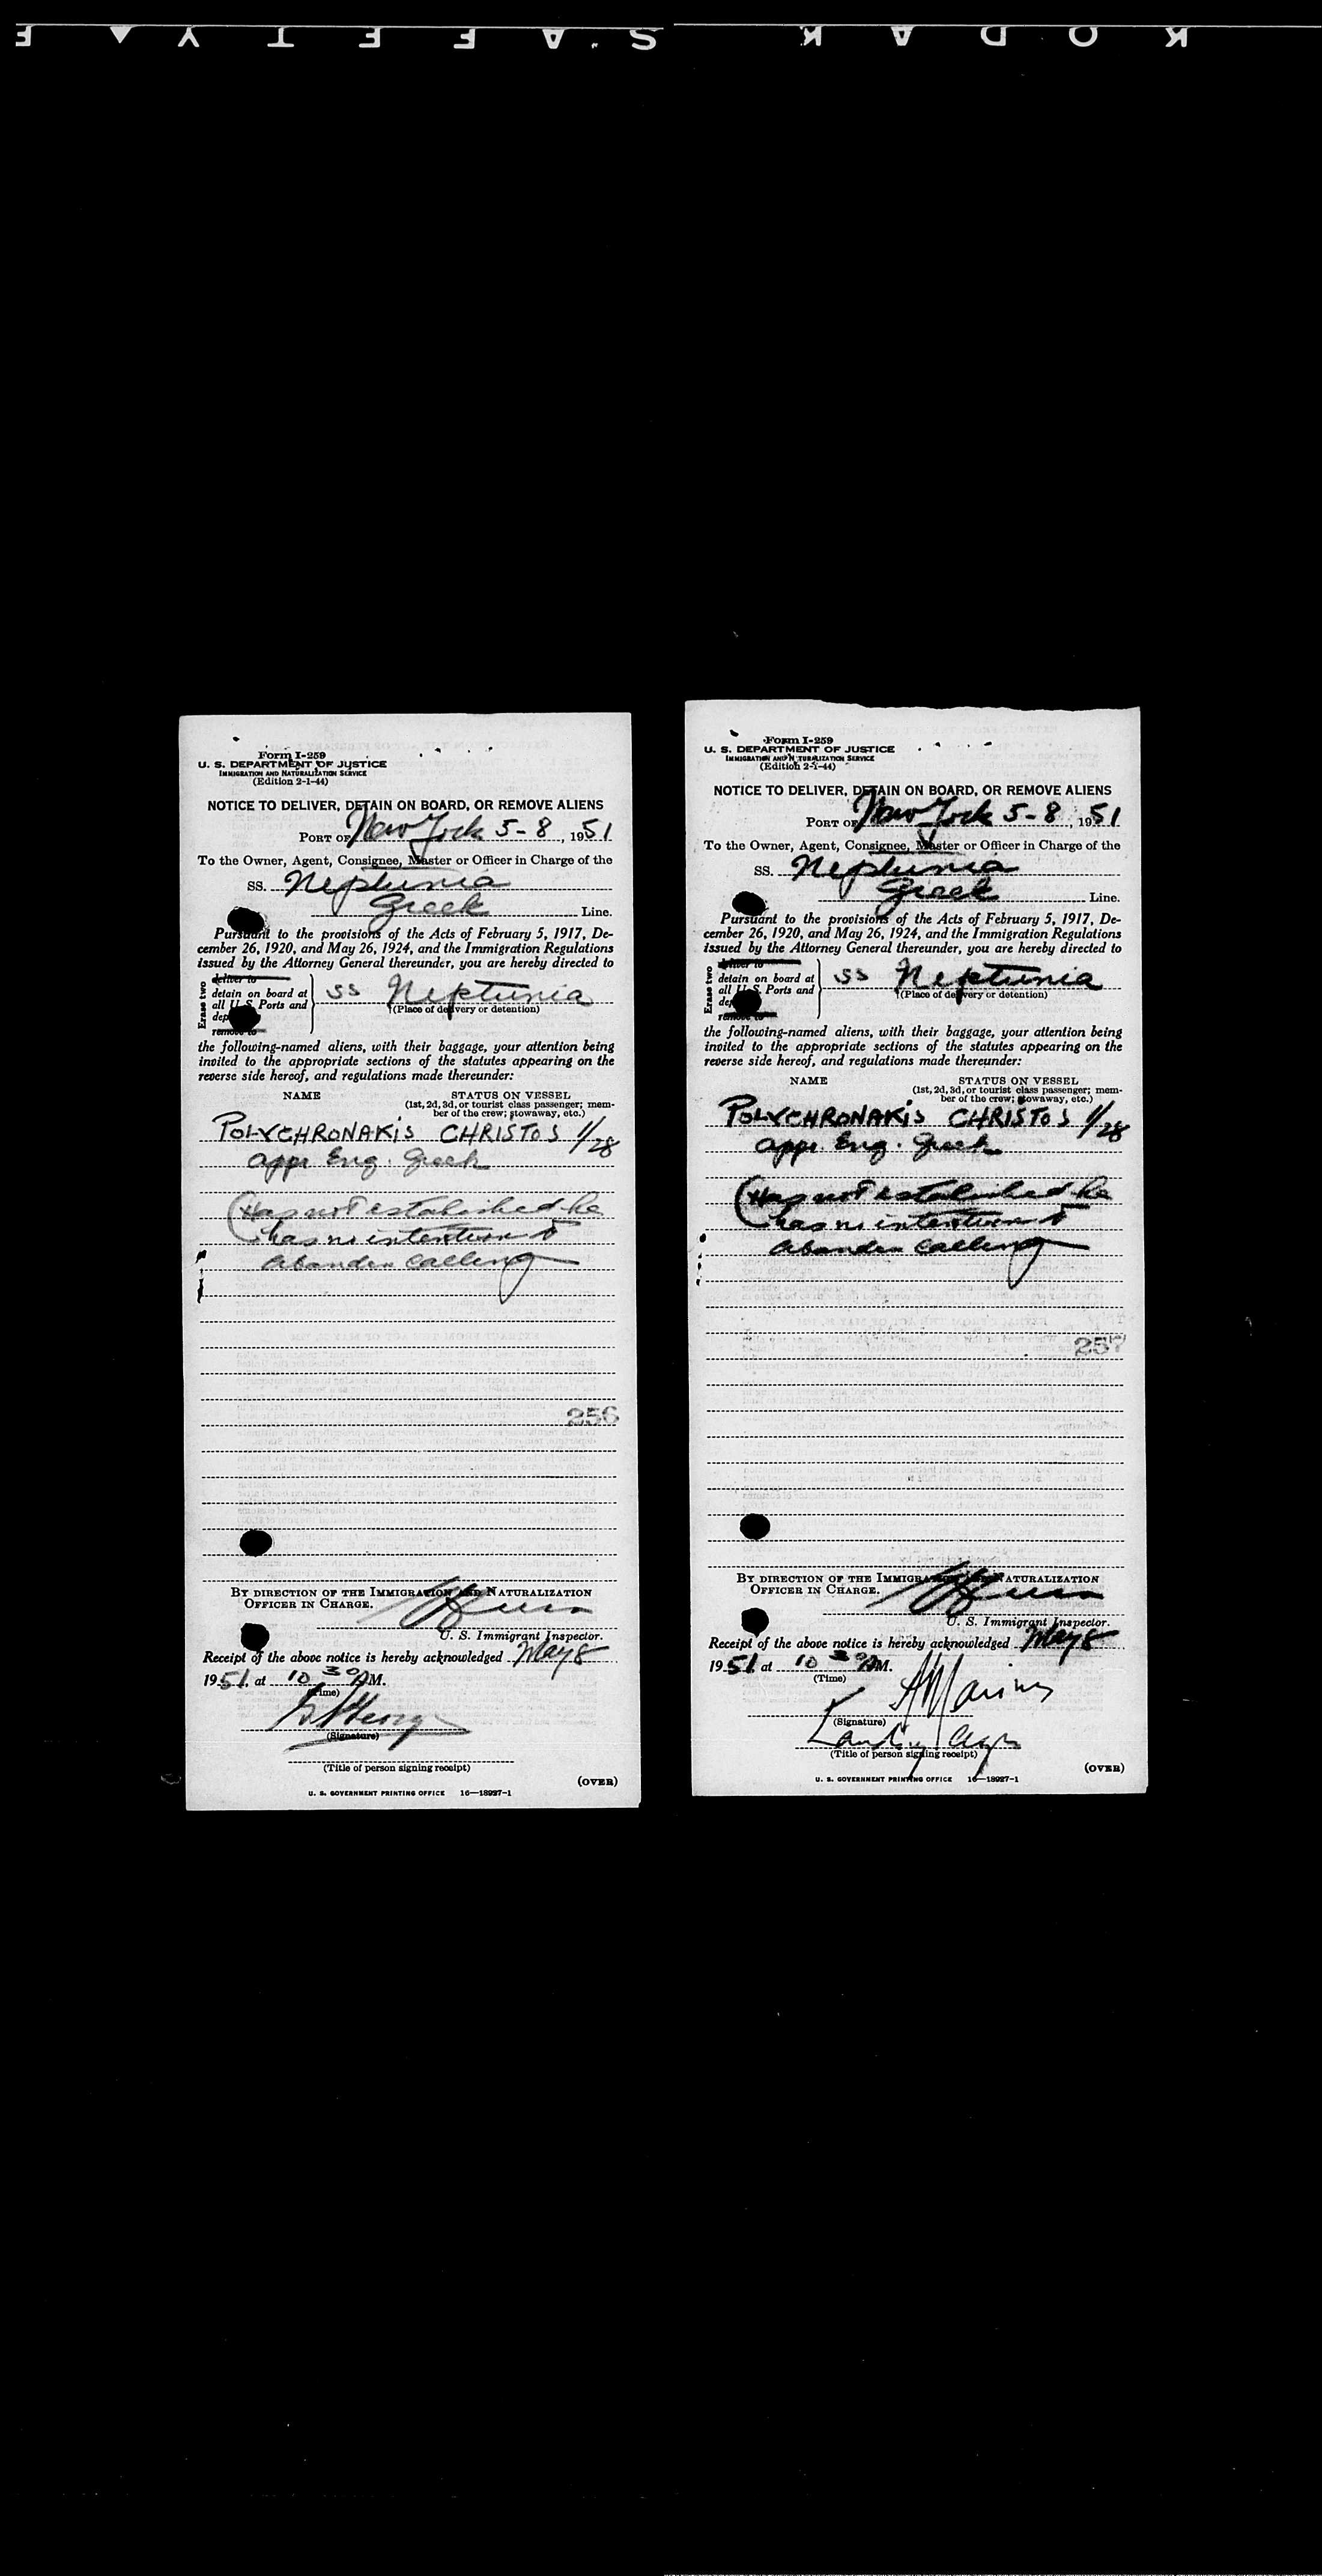 SAFETY
KODAK
Form I-259
U. S. DEPARTMENT OF JUSTICE
IMMIGRATION AND NATURALIZATION SERVICE
(Edition 2-1-44)
NOTICE TO DELIVER, DETAIN ON BOARD, OR REMOVE ALIENS
PORT OF New York 5-8, 1951
To the Owner, Agent, Consignee, Master or Officer in Charge of the
SS. Neptunia
Greek Line.
Pursuant to the provisions of the Acts of February 5, 1917, De-
cember 26, 1920, and May 26, 1924, and the Immigration Regulations
issued by the Attorney General thereunder, you are hereby directed to
Erase two
deliver to
detain on board at
all U.S. Ports and
dep
remove to
SS Neptunia
(Place of delivery or detention)
the following-named aliens, with their baggage, your attention being
invited to the appropriate sections of the statutes appearing on the
reverse side hereof, and regulations made thereunder:
NAME STATUS ON VESSEL
(1st, 2d, 3d, or tourist class passenger; mem-
ber of the crew; stowaway, etc.)
POLYCHRONAKIS CHRISTOS 1/28
appr. Eng. Greek
(Has not established he
has no intention to
abandon calling
256
BY DIRECTION OF THE IMMIGRATION AND NATURALIZATION
OFFICER IN CHARGE.
U. S. Immigrant Inspector.
Receipt of the above notice is hereby acknowledged May 8
1951 at 10 30 AM.
(Time)
(Signature)
(Title of person signing receipt)
(OVER)
U. S. GOVERNMENT PRINTING OFFICE 16—18927-1
Form I-259
U. S. DEPARTMENT OF JUSTICE
IMMIGRATION AND NATURALIZATION SERVICE
(Edition 2-1-44)
NOTICE TO DELIVER, DETAIN ON BOARD, OR REMOVE ALIENS
PORT OF New York 5-8, 1951
To the Owner, Agent, Consignee, Master or Officer in Charge of the
SS. Neptunia
Greek Line.
Pursuant to the provisions of the Acts of February 5, 1917, De-
cember 26, 1920, and May 26, 1924, and the Immigration Regulations
issued by the Attorney General thereunder, you are hereby directed to
Erase two
deliver to
detain on board at
all U.S. Ports and
dep
remove to
SS Neptunia
(Place of delivery or detention)
the following-named aliens, with their baggage, your attention being
invited to the appropriate sections of the statutes appearing on the
reverse side hereof, and regulations made thereunder:
NAME STATUS ON VESSEL
(1st, 2d, 3d, or tourist class passenger; mem-
ber of the crew; stowaway, etc.)
POLYCHRONAKIS CHRISTOS 1/28
appr. Eng. Greek
(Has not established he
has no intention to
abandon calling
257
BY DIRECTION OF THE IMMIGRATION AND NATURALIZATION
OFFICER IN CHARGE.
U. S. Immigrant Inspector.
Receipt of the above notice is hereby acknowledged May 8
1951 at 10 30 AM.
(Time)
(Signature)
(Title of person signing receipt)
(OVER)
U. S. GOVERNMENT PRINTING OFFICE 16—18927-1